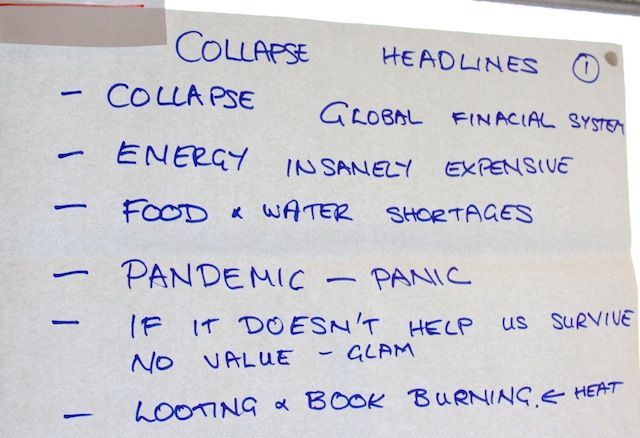 COLLAPSE HEADLINES 1
- COLLAPSE GLOBAL FINACIAL SYSTEM
- ENERGY INSANELY EXPENSIVE
- FOOD & WATER SHORTAGES
- PANDEMIC - PANIC
- IF IT DOESN'T HELP US SURVIVE
NO VALUE - GLAM
- LOOTING & BOOK BURNING. ← HEAT